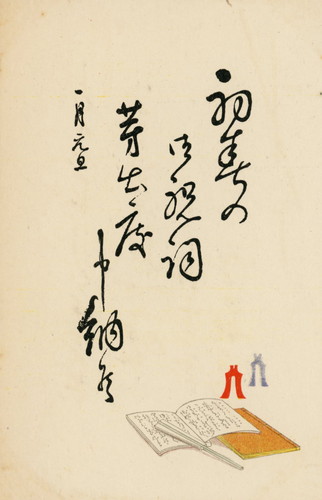 初春の
御祝詞
芽出度
申納候
一月元旦